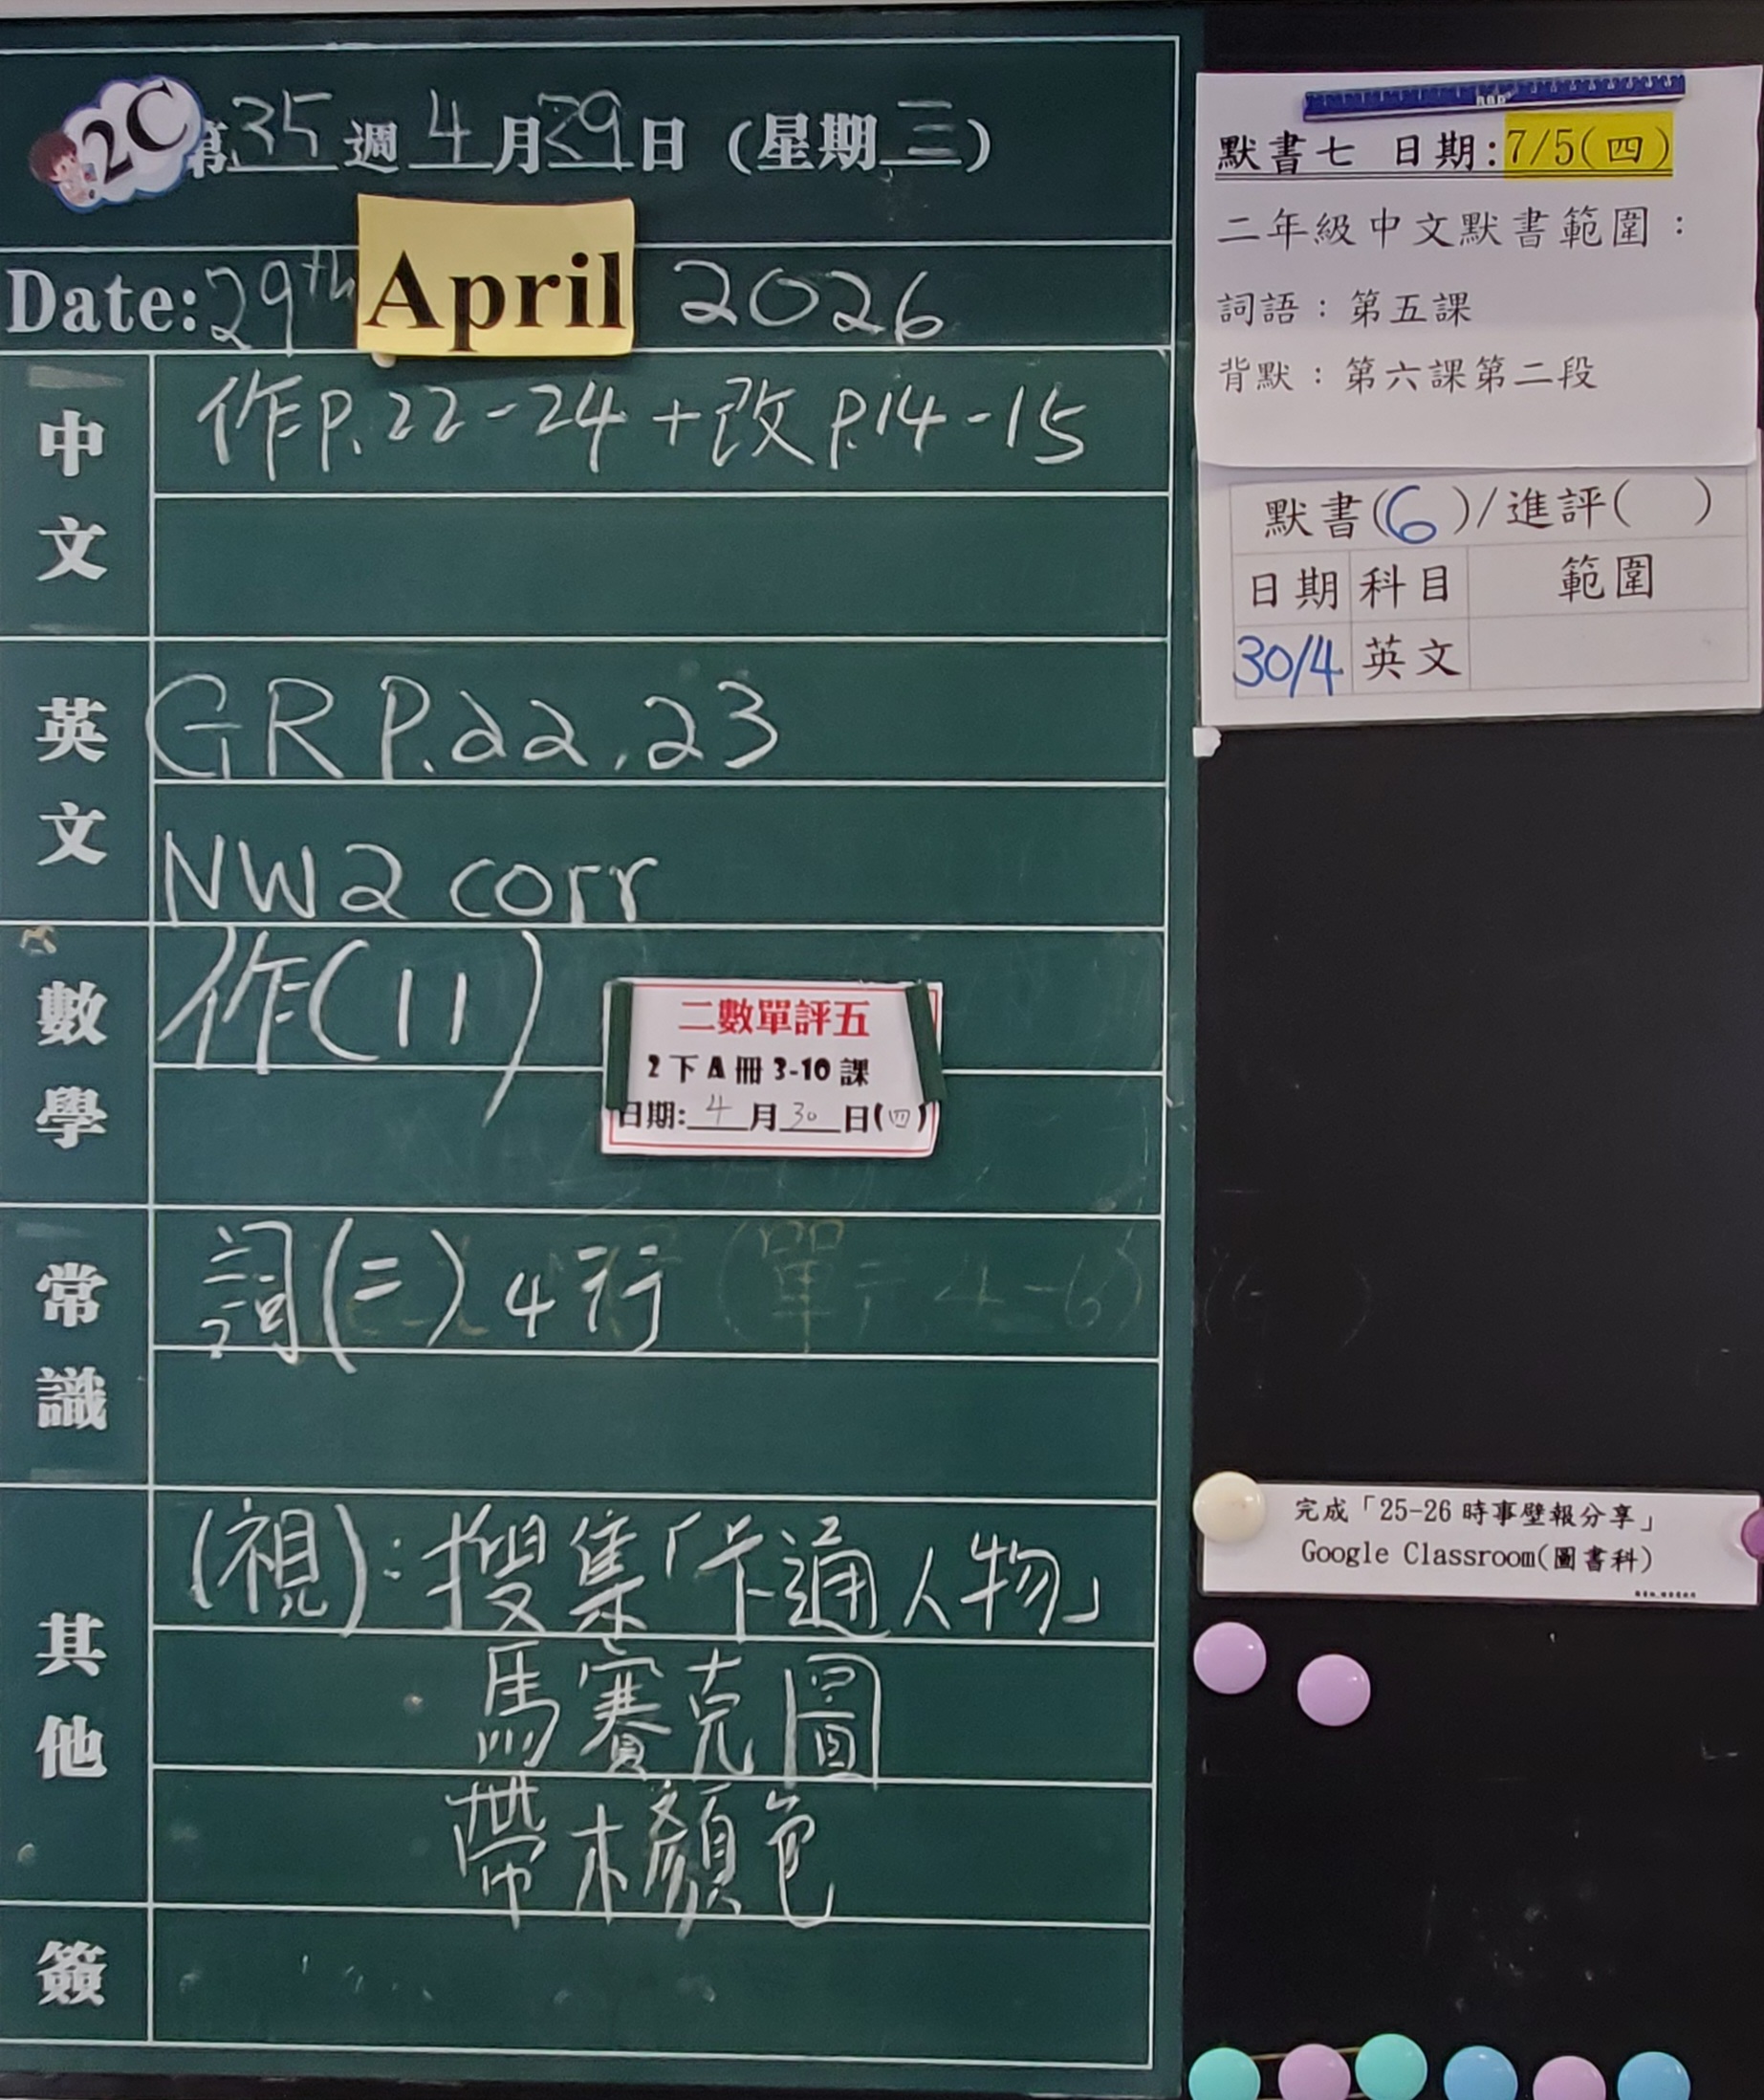 2C
第35週4月29日(星期三)
Date:29th April 2026
中文
作P.22-24+改P.14-15
英文
GR P.22,23
NW2 corr
數學
作(11)
二數單評五
2下A冊3-10課
日期:4月30日(四)
常識
詞(二)4行
(單元4-6)
其他
(視):搜集「卡通人物」
馬賽克圖
帶木顏色
簽
默書七 日期:7/5(四)
二年級中文默書範圍:
詞語:第五課
背默:第六課第二段
默書(6)/進評( )
日期 科目 範圍
30/4 英文
完成「25-26時事壁報分享」
Google Classroom(圖書科)